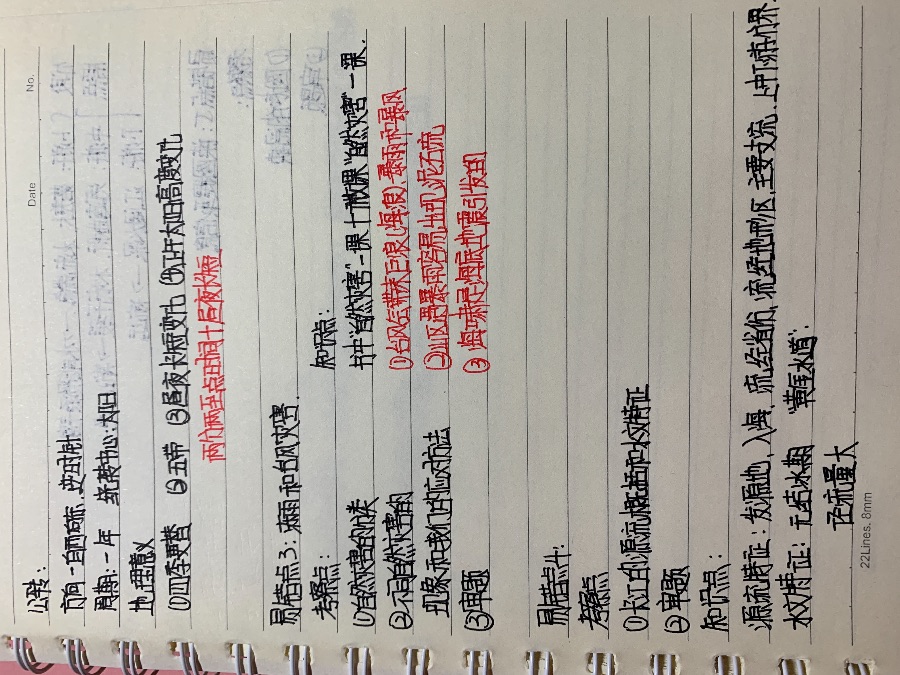 No.
Date
公转:
方向:自西向东,逆时针
周期:一年 绕转中心:太阳.
地理意义
①四季更替 ②五带 ③昼夜长短变化 ④正午太阳高度变化
两分两至点时间+昼夜长短
易错点3:暴雨和台风灾害.
考察点: 知识点:
①自然灾害的分类 书中"自然灾害"一课+微课"自然灾害"一课.
②不同自然灾害的 ①台风会带来巨浪(海浪)、暴雨和暴风
现象和我们的应对方法 ②山区遇暴雨容易出现泥石流
③单题 ③海啸是海底地震引发的
易错点4:
考察点
①长江的源流概括和水文特征
②单题
知识点:
源流特征:发源地,入海,流经省份,流经地形区,主要支流.上中下游分界.
水文特征:无结冰期 "黄金水道".
径流量大
22Lines. 8mm